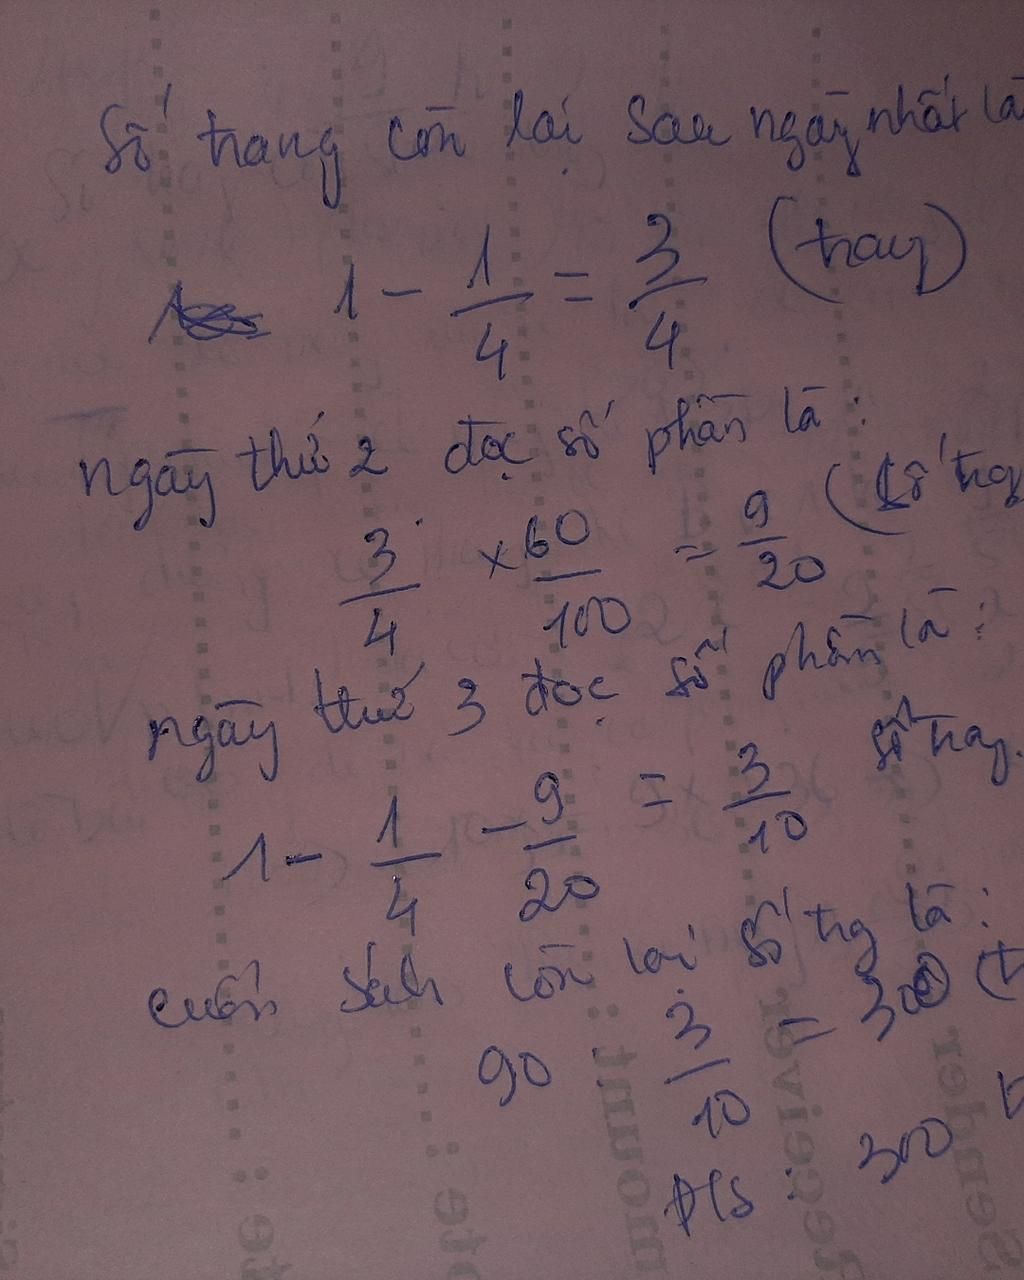 Số trang còn lại sau ngày nhất là
1 - 1/4 = 3/4 (trang)
ngày thứ 2 đọc số phần là:
3/4 × 60/100 = 9/20 (số trg
ngày thứ 3 đọc số phần là:
1 - 1/4 - 9/20 = 3/10 số trag.
cuốn sách còn lại số trg là:
90 : 3/10 = 300 (t
Đ/S : 300
Sender
Receiver
mount :
te :
te :